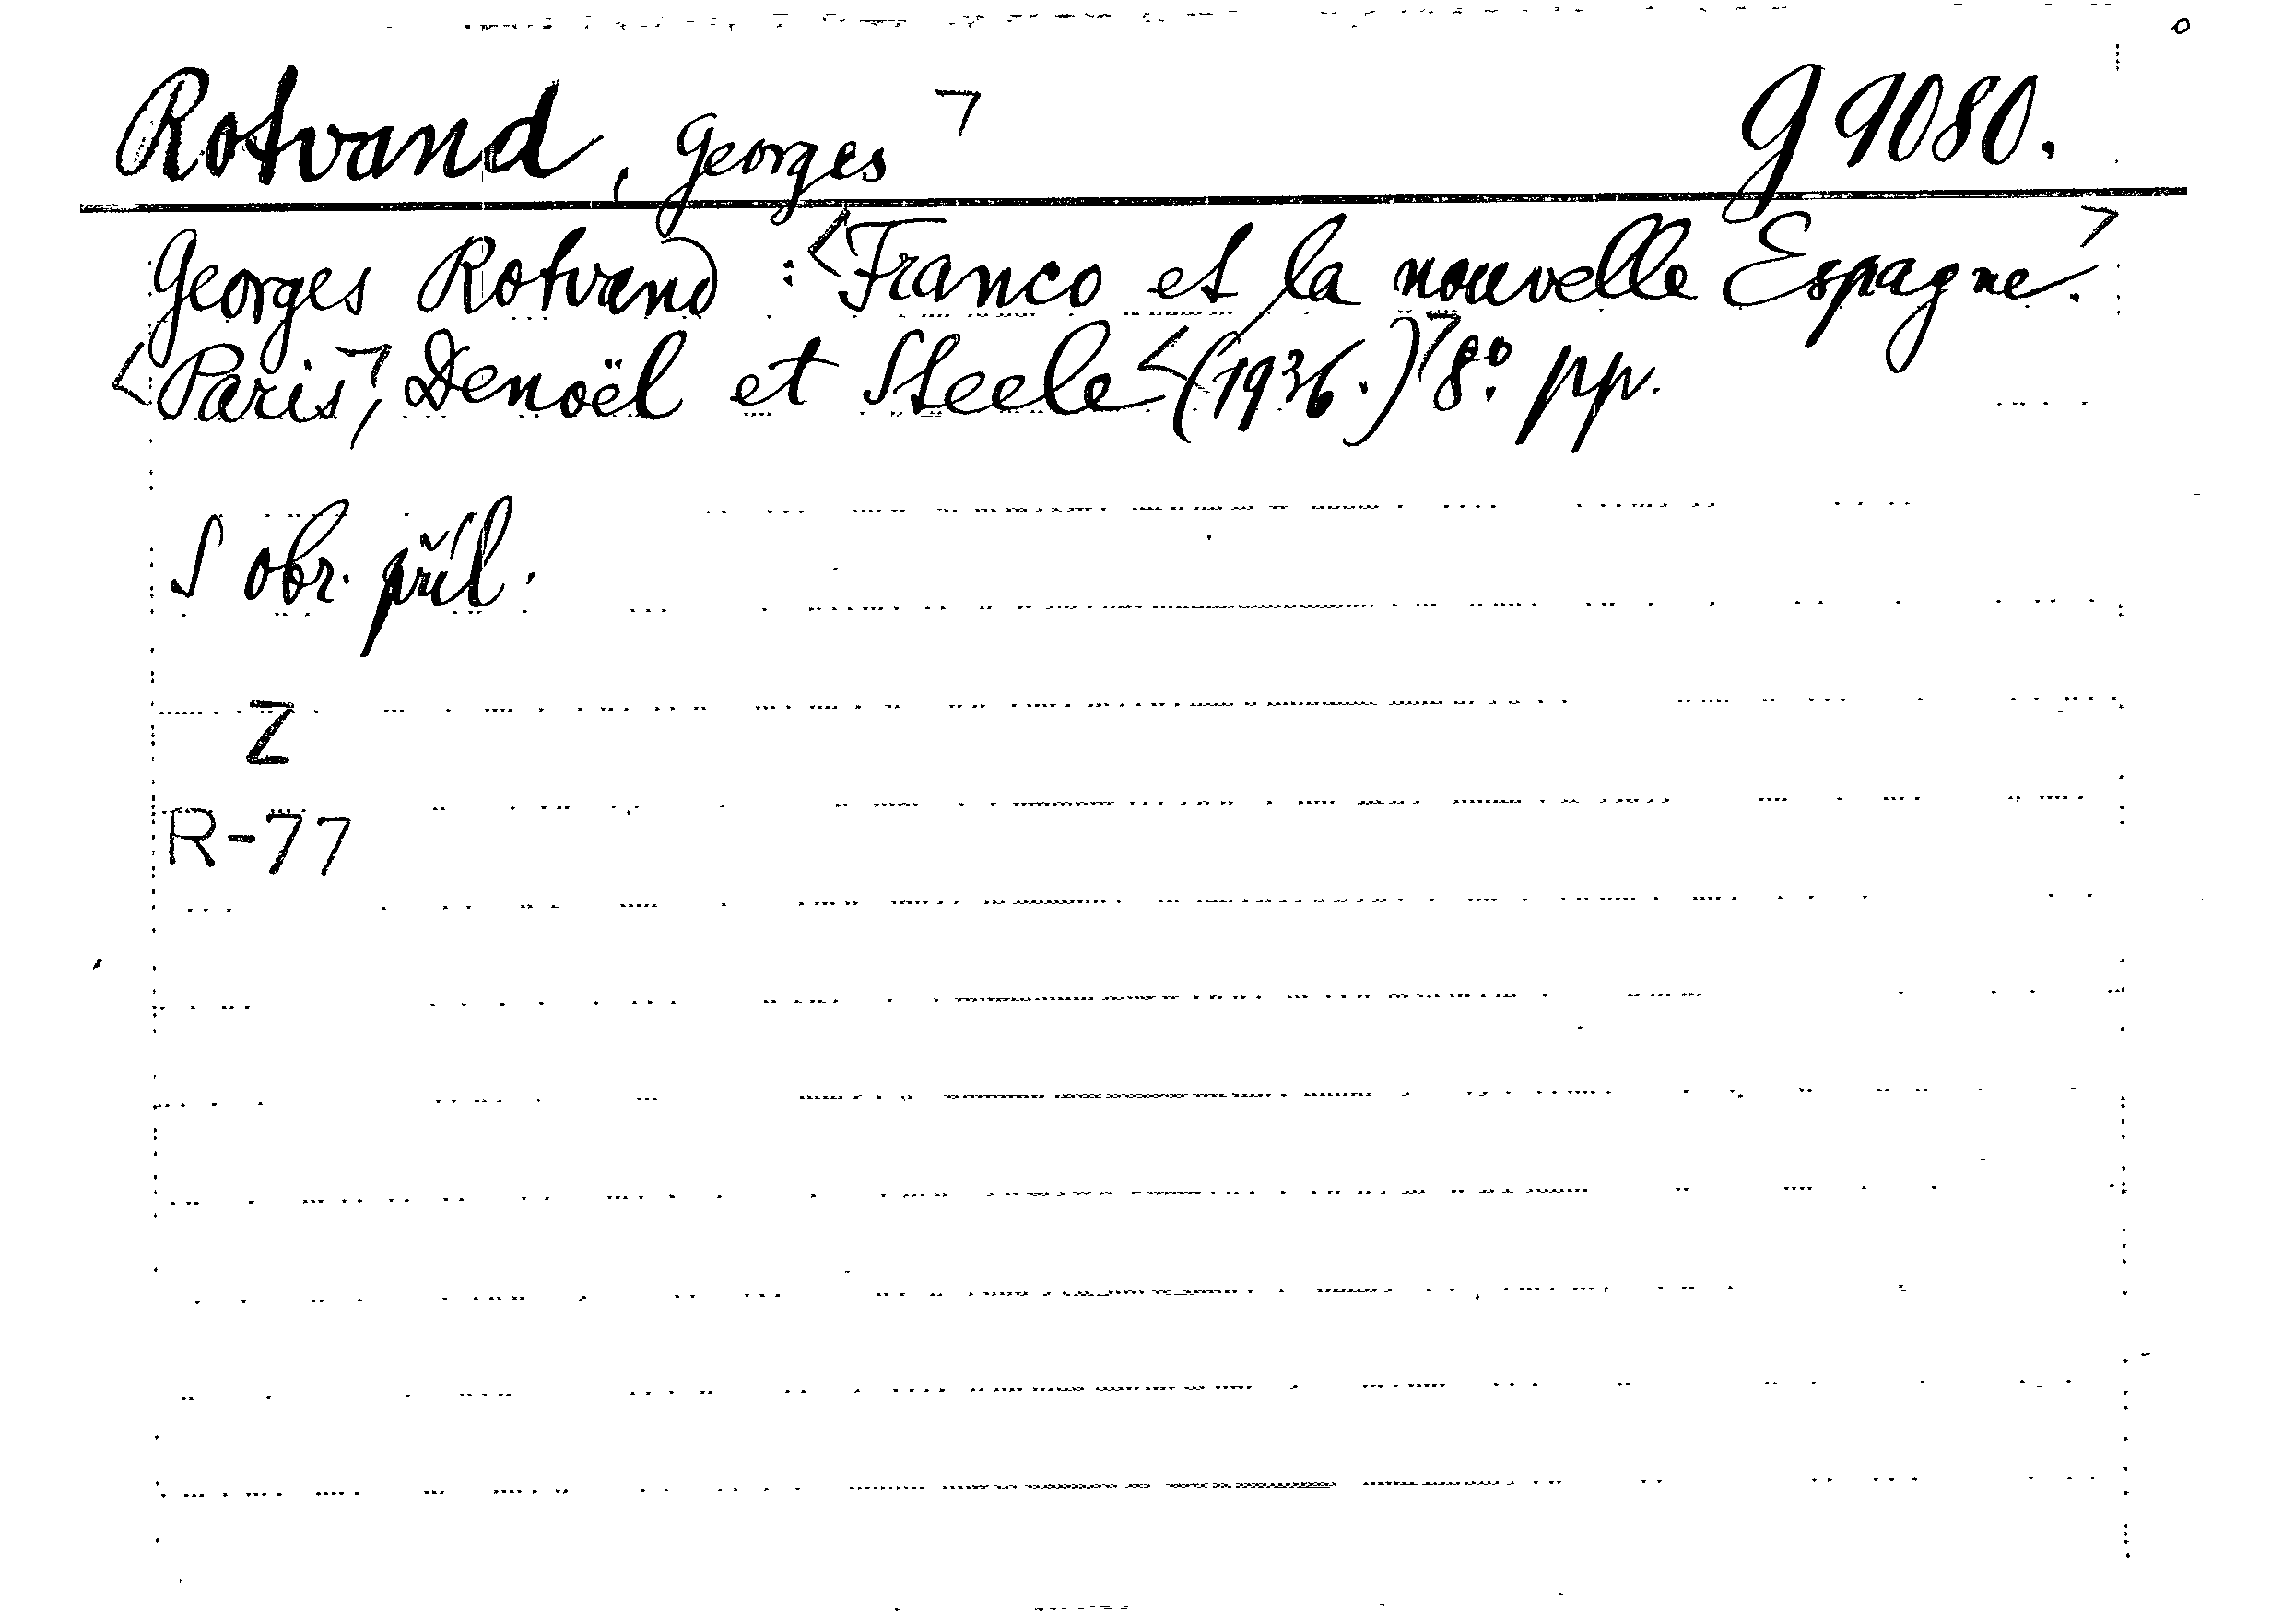 Rotvand, Georges ⌝ G 9080.
Georges Rotvand : <Franco et la nouvelle Espagne.⌝
<Paris⌝, Denoël et Steele <(1936.)⌝ 8º. pp.
S obr. příl.
Z
R-77